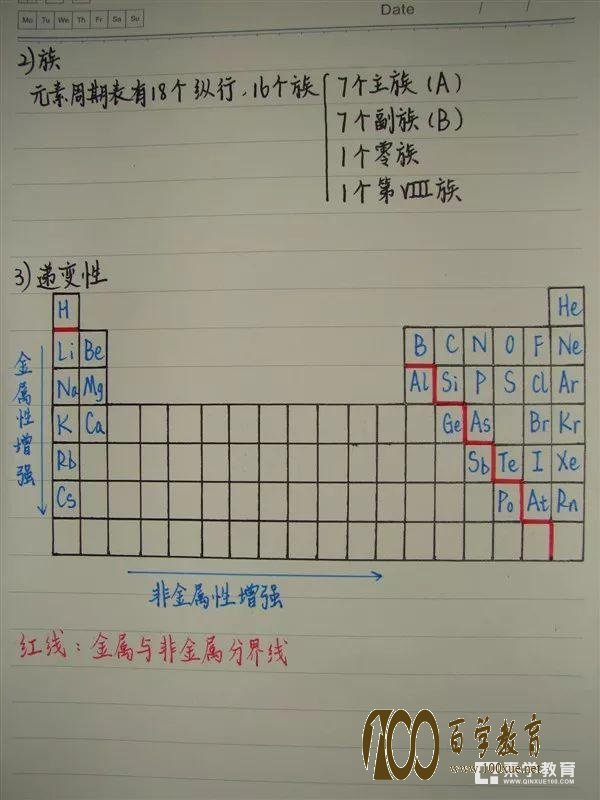 Date / /
Mo Tu We Th Fr Sa Su
2)族
元素周期表有18个纵行,16个族
7个主族(A)
7个副族(B)
1个零族
1个第VIII族
3)递变性
H He
Li Be B C N O F Ne
Na Mg Al Si P S Cl Ar
K Ca Ge As Br Kr
Rb Sb Te I Xe
Cs Po At Rn
金属性增强
非金属性增强
红线:金属与非金属分界线
100 百学教育
www.100xue.net
学教育
WWW.QINXUE100.COM